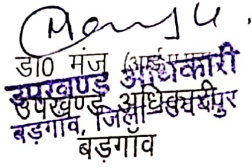 डा० मंजू
उपखण्ड अधिकारी
उपखण्ड अधिकारी
बड़गाँव, जिला उदयपुर
बड़गाँव